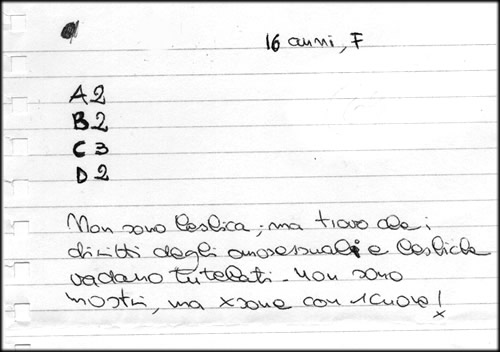 16 anni, F
A2
B2
C3
D2
Non sono lesbica, ma trovo che i
diritti degli omosessuali e lesbiche
vadano tutelati. Non sono
mostri, ma xsone con 1 cuore!